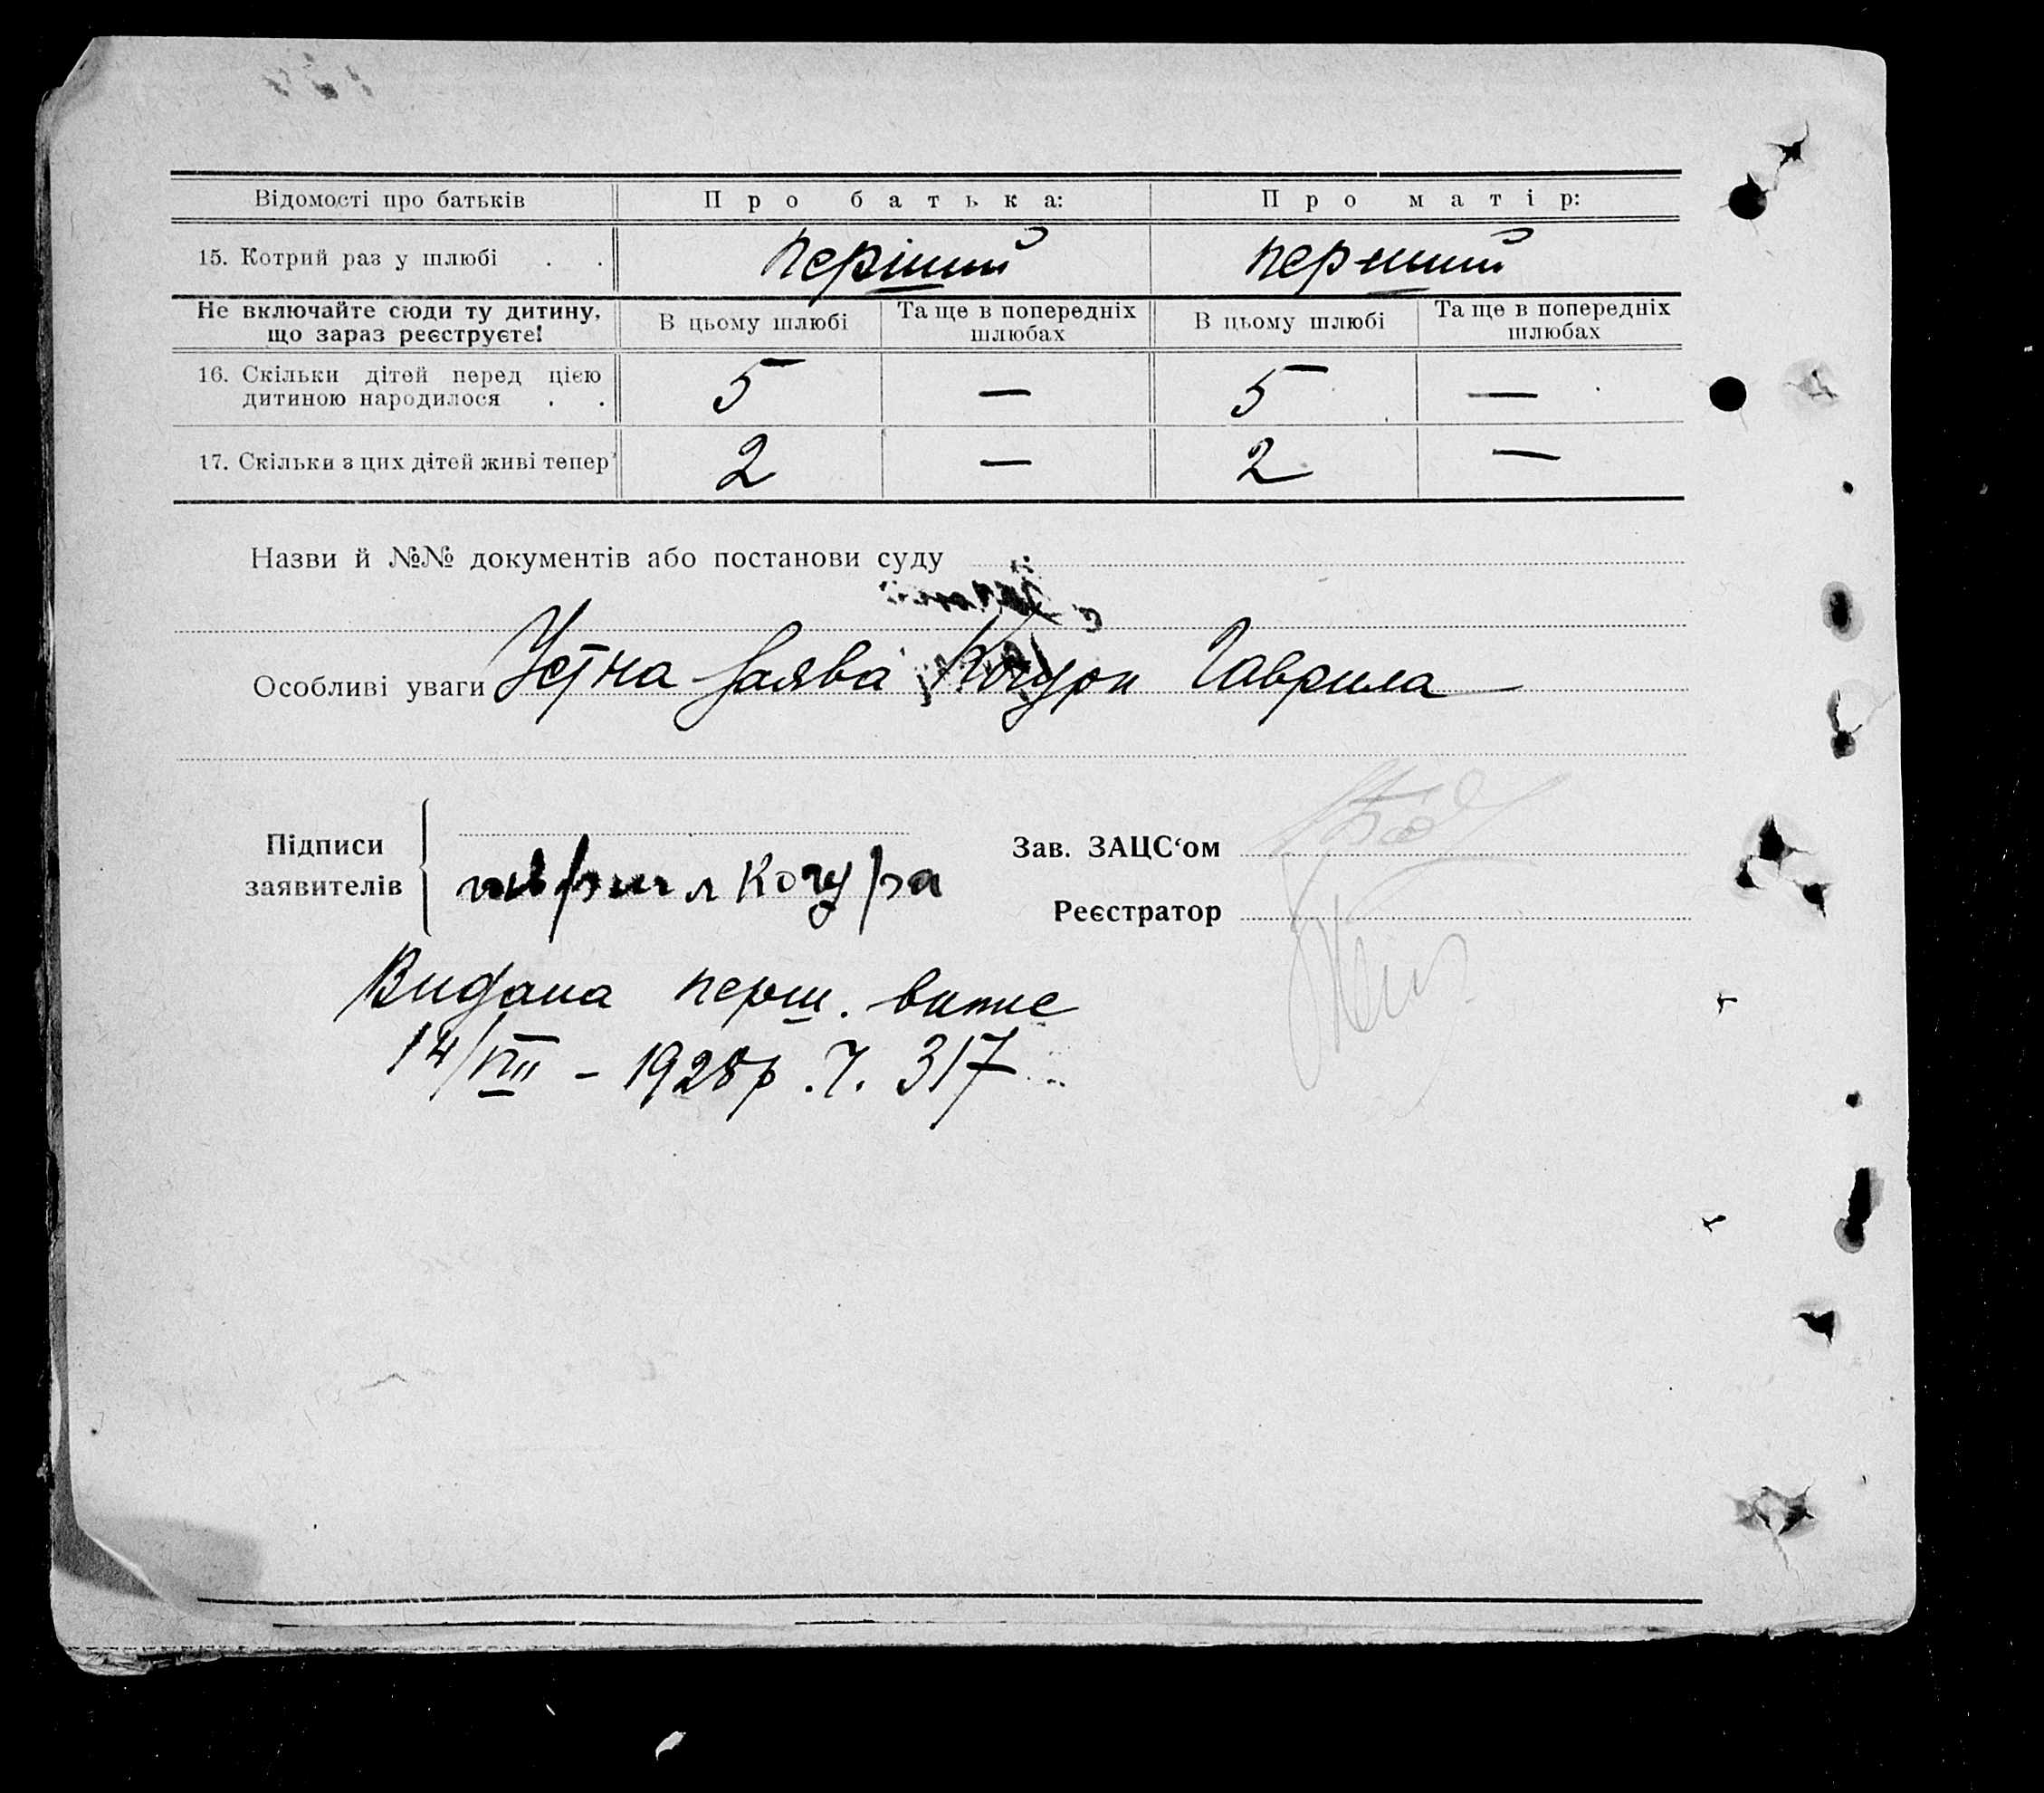 Відомості про батьків Про батька: Про матір:
15. Котрий раз у шлюбі . . перший перший
Не включайте сюди ту дитину, що зараз реєструєте! В цьому шлюбі Та ще в попередніх шлюбах В цьому шлюбі Та ще в попередніх шлюбах
16. Скільки дітей перед цією дитиною народилося . . 5 — 5 —
17. Скільки з цих дітей живі тепер 2 — 2 —
Назви й №№ документів або постанови суду
Особливі уваги Устна заява Кочури Гаврила
Підписи заявителів
гаврил Кочура
Зав. ЗАЦС‘ом
Реєстратор
Видана перш. витяг
14/VIII - 1928р. Ч. 317